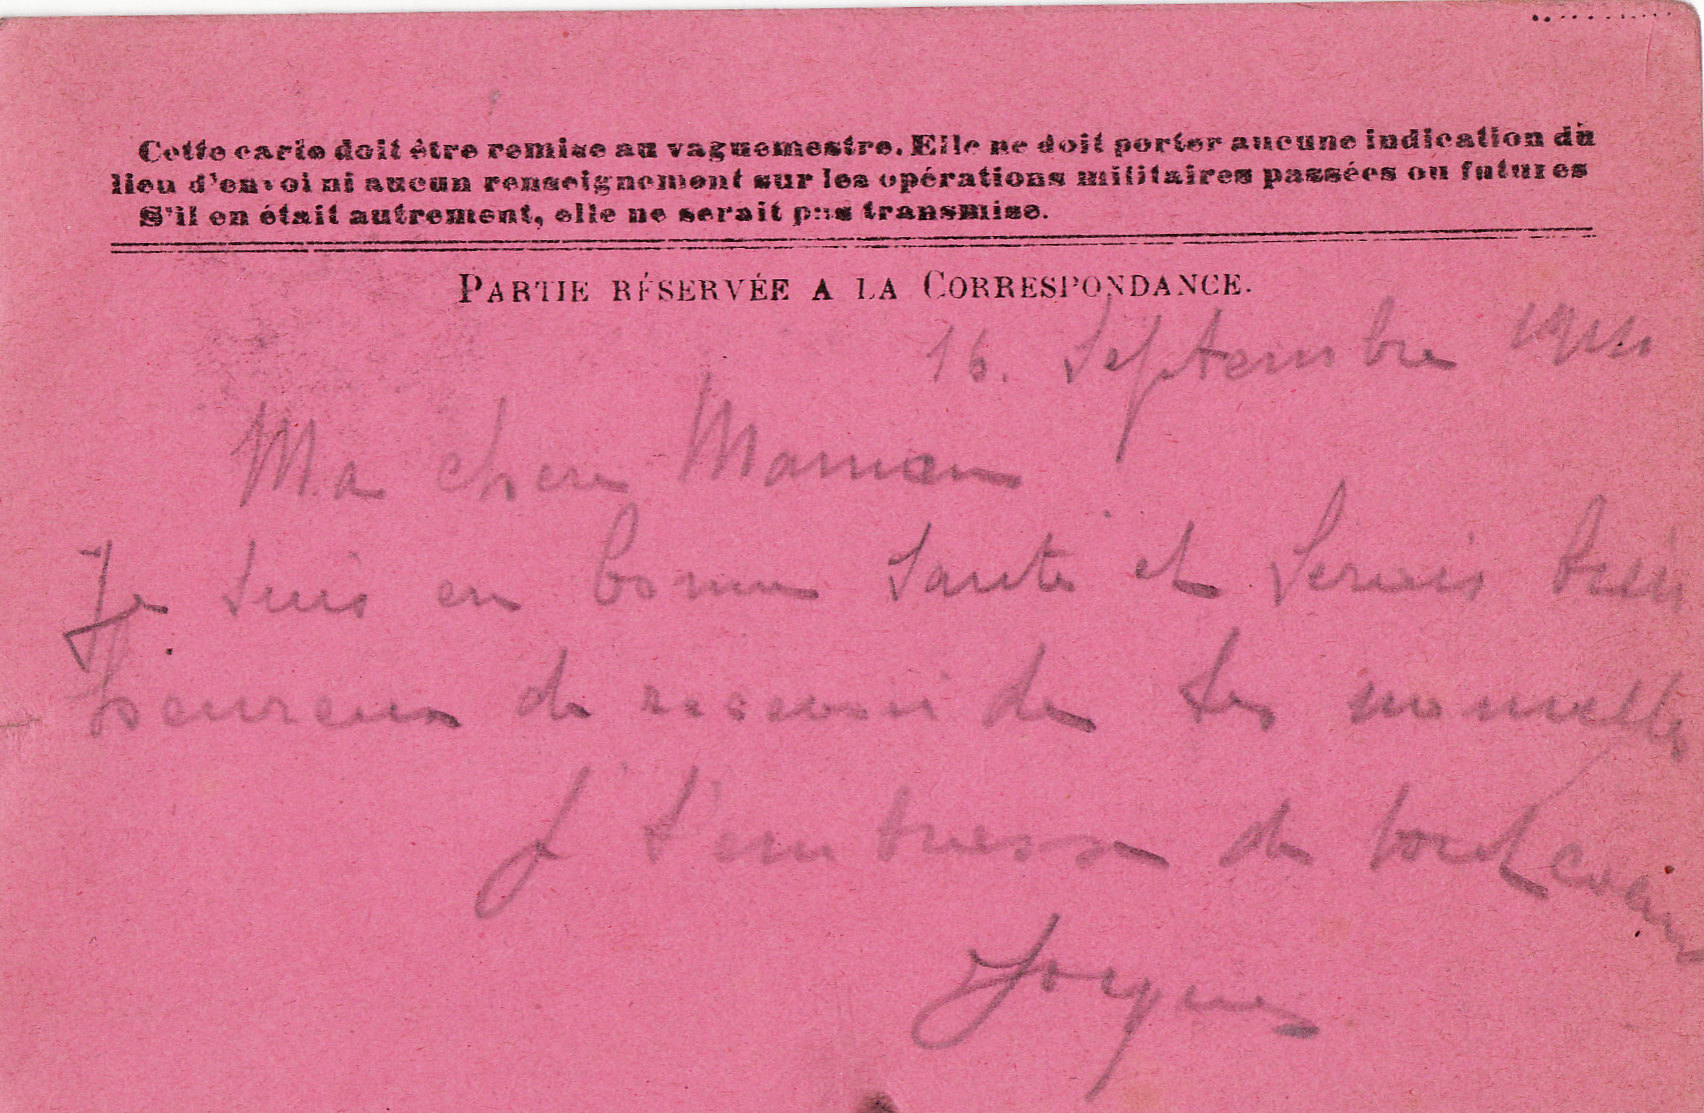 Cette carte doit être remise au vaguemestre. Elle ne doit porter aucune indication du
lieu d'envoi ni aucun renseignement sur les opérations militaires passées ou futures
S'il en était autrement, elle ne serait pas transmise.
PARTIE RÉSERVÉE A LA CORRESPONDANCE.
16. Septembre 1914
Ma chere Maman
Je suis en bonne santé et serais bien
heureux de recevoir de tes nouvelles
Je t'embrasse de tout coeur
Jacques